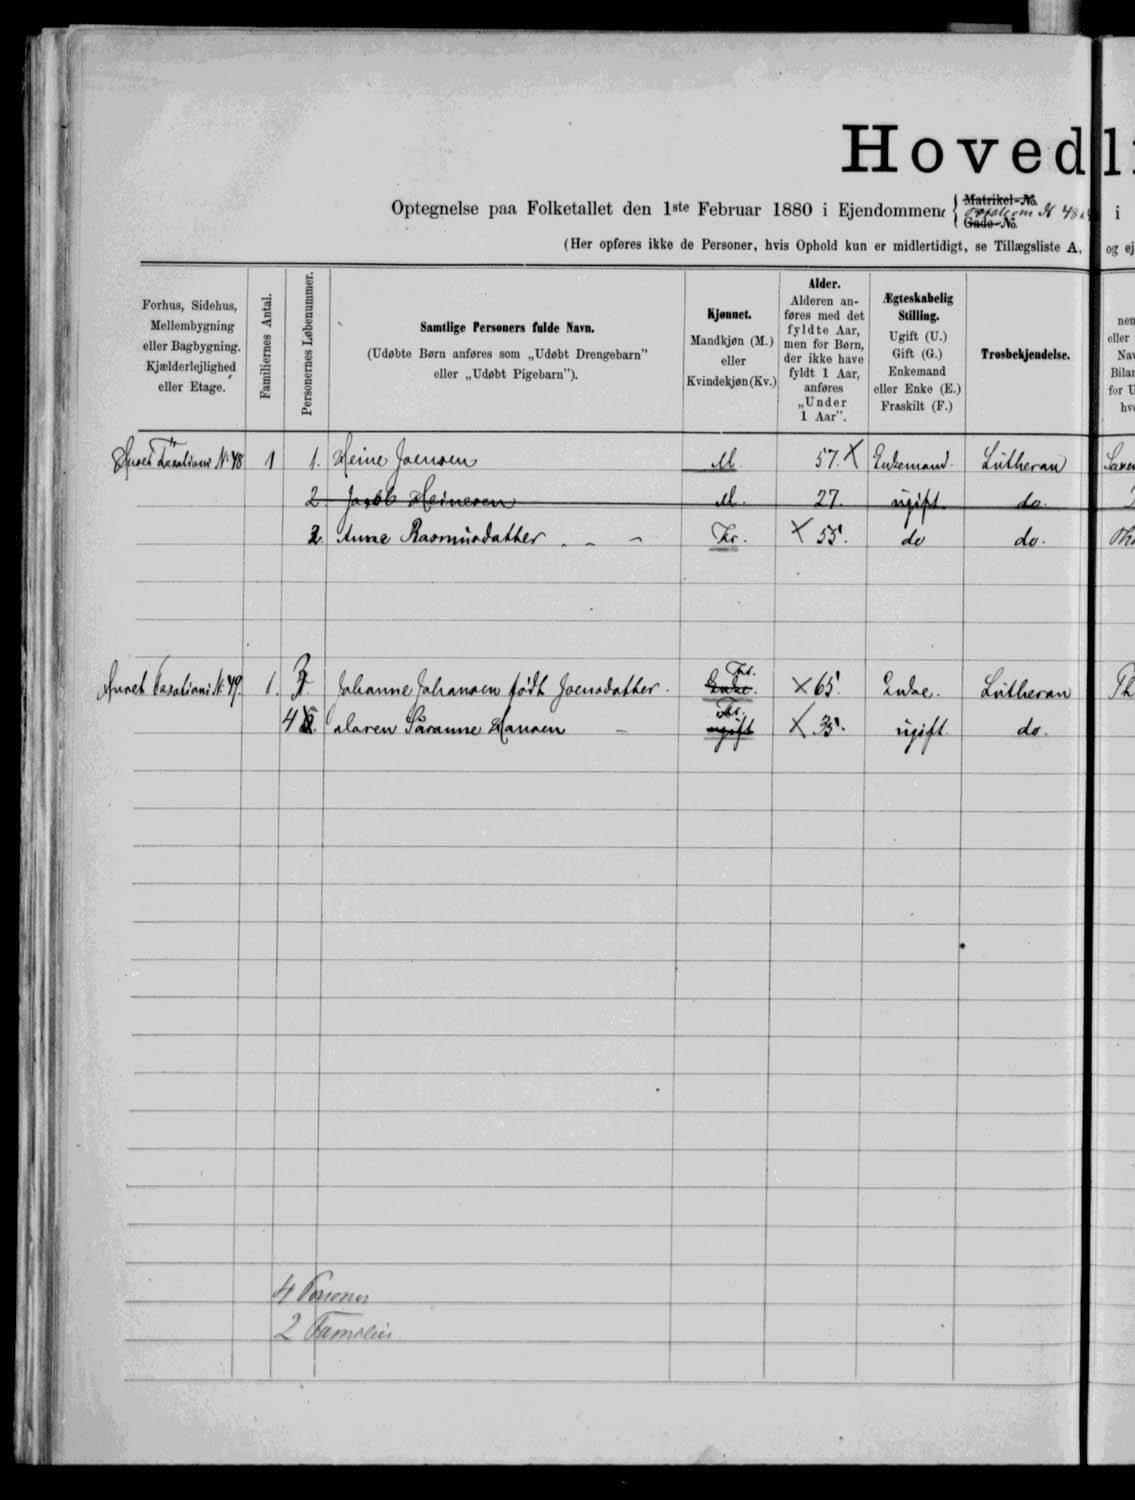 Hovedli
Optegnelse paa Folketallet den 1ste Februar 1880 i Ejendommene { Matrikel-No. N 48 Gade-No. i
(Her opføres ikke de Personer, hvis Ophold kun er midlertidigt, se Tillægsliste A, og ej
Forhus, Sidehus, Mellembygning eller Bagbygning. Kjælderlejlighed eller Etage.
Familiernes Antal.
Personernes Løbenummer.
Samtlige Personers fulde Navn.
(Udøbte Børn anføres som „Udøbt Drengebarn”
eller „Udøbt Pigebarn”).
Kjønnet.
Mandkjøn (M.)
eller
Kvindekjøn (Kv.)
Alder.
Alderen an-
føres med det
fyldte Aar,
men for Børn,
der ikke have
fyldt 1 Aar,
anføres
„Under
1 Aar”.
Ægteskabelig
Stilling.
Ugift (U.)
Gift (G.)
Enkemand
eller Enke (E.)
Fraskilt (F.)
Trosbekjendelse.
nen
eller
Nav
Bilan
for U
hvo
Huset No 48 1 1. Heine Joensen M. 57. X Enkemand. Lutheran
2 Jacob Heinesen M. 27. ugift. do.
2. Anne Rasmusdatter Kv. X 55. do do.
Huset No 49. 1. 3 Johanne Johansen født Joensdatter. Enke. Kv. X 65. Enke. Lutheran Th
4 Maren Susanne Hansen ugift Kv. X 35. ugift. do.
4 Personer
2 Familier